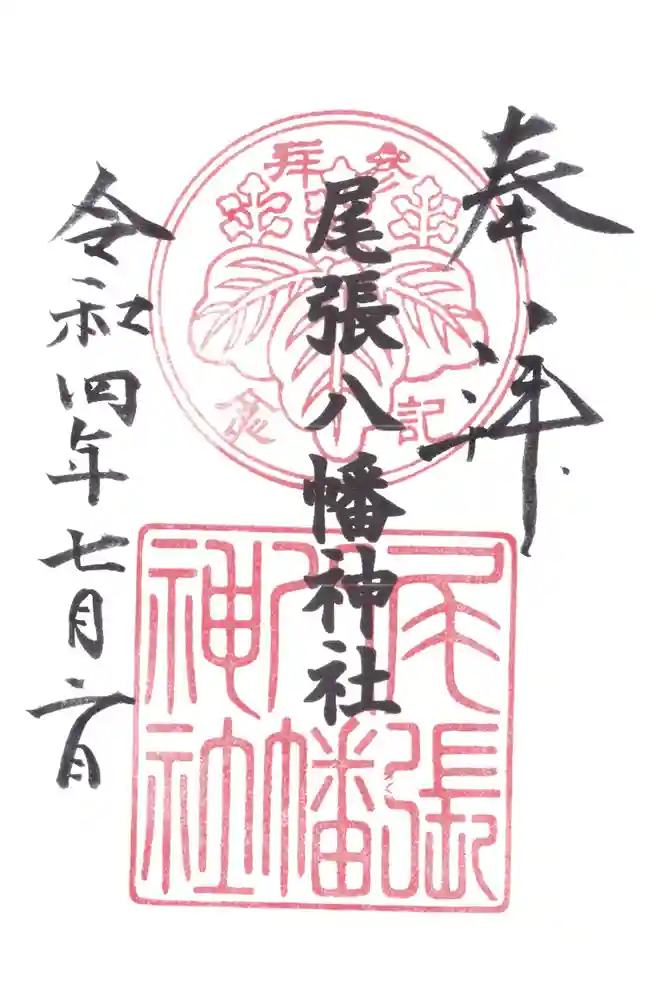 奉拝
参拝
記念
尾張八幡神社
尾張
八幡
神社
令和四年七月日